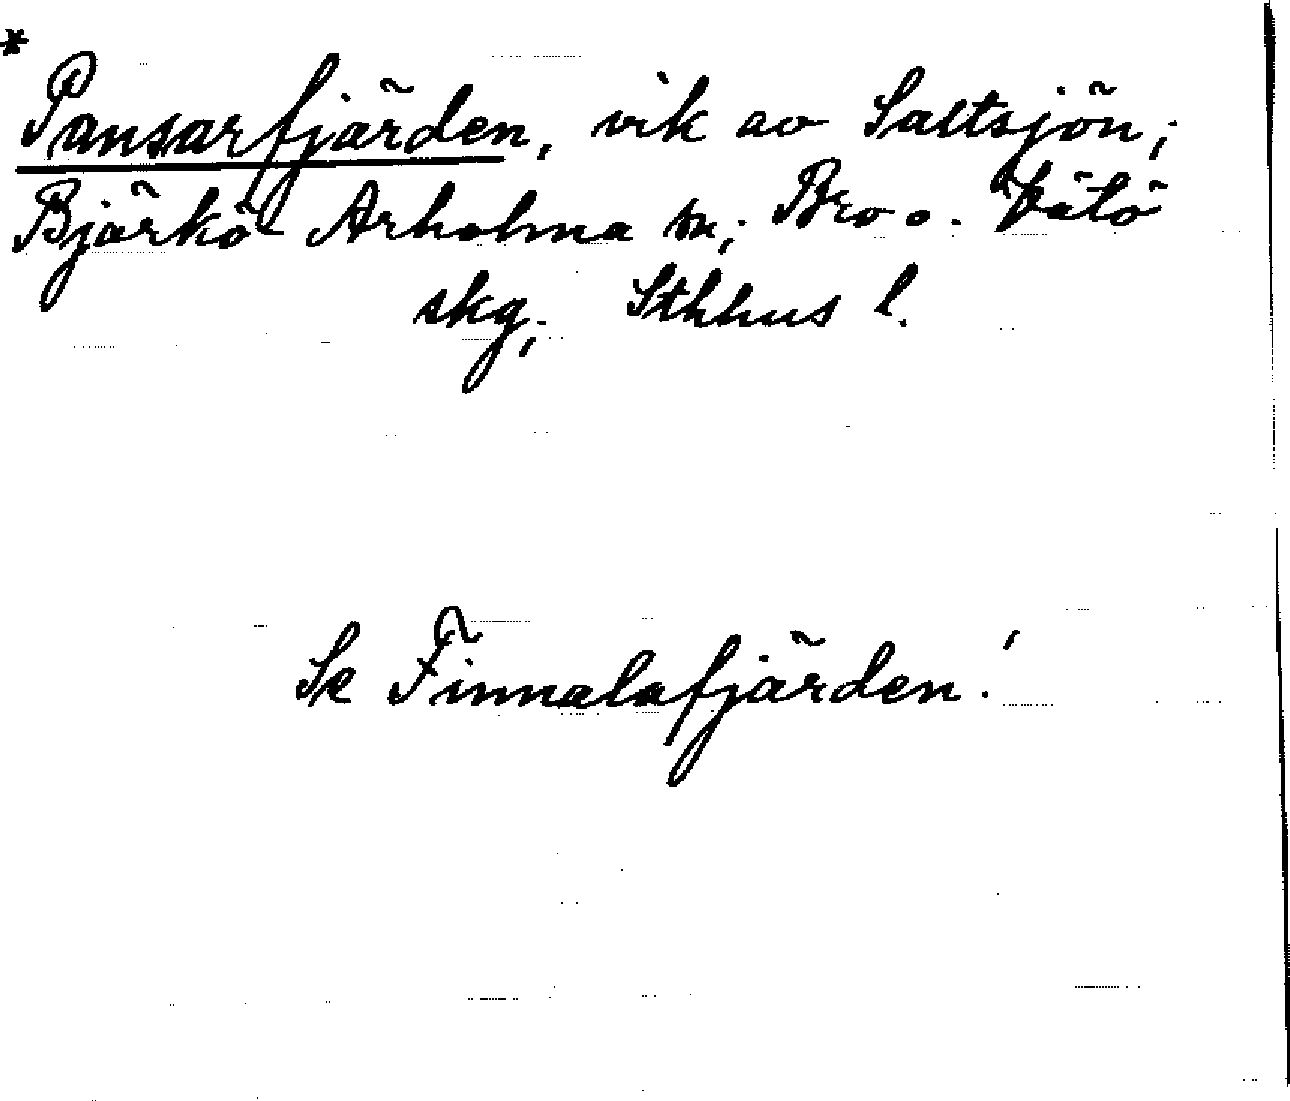 *
Pansarfjärden, vik av Saltsjön;
Björkö-Arholma sn; Bro o. Vätö
skg; Sthhus l.
Se Finnalafjärden!